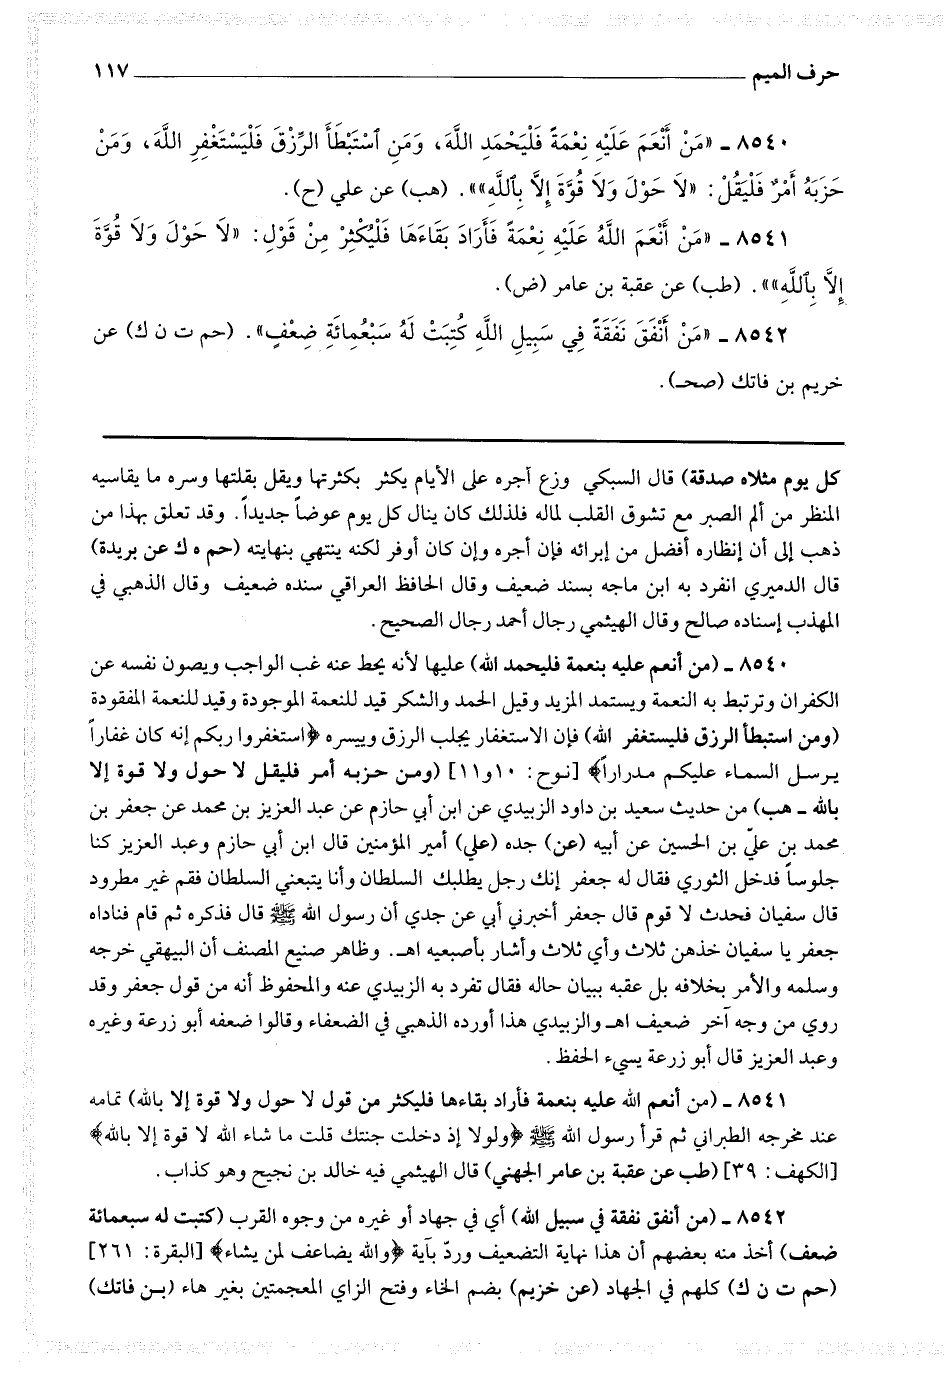 حرف الميم ١١٧
٨٥٤٠ ـ «مَنْ أَنْعَمَ عَلَيْهِ نِعْمَةً فَلْيَحْمَدِ اللَّهَ، وَمَنِ ٱسْتَبْطَأَ الرِّزْقَ فَلْيَسْتَغْفِرِ اللَّهَ، وَمَنْ
حَزَبَهُ أَمْرٌ فَلْيَقُلْ: «لَا حَوْلَ وَلَا قُوَّةَ إِلَّا بِٱللَّهِ»». (هب) عن علي (ح).
٨٥٤١ ـ «مَنْ أَنْعَمَ اللَّهُ عَلَيْهِ نِعْمَةً فَأَرَادَ بَقَاءَهَا فَلْيُكْثِرْ مِنْ قَوْلِ: «لَا حَوْلَ وَلَا قُوَّةَ
إِلَّا بِٱللَّهِ»». (طب) عن عقبة بن عامر (ض).
٨٥٤٢ ـ «مَنْ أَنْفَقَ نَفَقَةً فِي سَبِيلِ اللَّهِ كُتِبَتْ لَهُ سَبْعُمِائَةِ ضِعْفٍ». (حم ت ن ك) عن
خريم بن فاتك (صحـ).
كل يوم مثلاه صدقة) قال السبكي وزع أجره على الأيام يكثر بكثرتها ويقل بقلتها وسره ما يقاسيه
المنظر من ألم الصبر مع تشوق القلب لماله فلذلك كان ينال كل يوم عوضاً جديداً. وقد تعلق بهذا من
ذهب إلى أن إنظاره أفضل من إبرائه فإن أجره وإن كان أوفر لكنه ينتهي بنهايته (حم ه ك عن بريدة)
قال الدميري انفرد به ابن ماجه بسند ضعيف وقال الحافظ العراقي سنده ضعيف وقال الذهبي في
المهذب إسناده صالح وقال الهيثمي رجال أحمد رجال الصحيح.
٨٥٤٠ ـ (من أنعم عليه بنعمة فليحمد الله) عليها لأنه يحط عنه غب الواجب ويصون نفسه عن
الكفران وترتبط به النعمة ويستمد المزيد وقيل الحمد والشكر قيد للنعمة الموجودة وقيد للنعمة المفقودة
(ومن استبطأ الرزق فليستغفر الله) فإن الاستغفار يجلب الرزق وييسره ﴿استغفروا ربكم إنه كان غفاراً
يرسل السماء عليكم مدراراً﴾ [نوح: ١٠و١١] (ومن حزبه أمر فليقل لا حول ولا قوة إلا
بالله ـ هب) من حديث سعيد بن داود الزبيدي عن ابن أبي حازم عن عبد العزيز بن محمد عن جعفر بن
محمد بن عليّ بن الحسين عن أبيه (عن) جده (علي) أمير المؤمنين قال ابن أبي حازم وعبد العزيز كنا
جلوساً فدخل الثوري فقال له جعفر إنك رجل يطلبك السلطان وأنا يتبعني السلطان فقم غير مطرود
قال سفيان فحدث لا قوم قال جعفر أخبرني أبي عن جدي أن رسول الله ﷺ قال فذكره ثم قام فناداه
جعفر يا سفيان خذهن ثلاث وأي ثلاث وأشار بأصبعيه اهـ. وظاهر صنيع المصنف أن البيهقي خرجه
وسلمه والأمر بخلافه بل عقبه ببيان حاله فقال تفرد به الزبيدي عنه والمحفوظ أنه من قول جعفر وقد
روي من وجه آخر ضعيف اهـ والزبيدي هذا أورده الذهبي في الضعفاء وقالوا ضعفه أبو زرعة وغيره
وعبد العزيز قال أبو زرعة يسيء الحفظ.
٨٥٤١ ـ (من أنعم الله عليه بنعمة فأراد بقاءها فليكثر من قول لا حول ولا قوة إلا بالله) تمامه
عند مخرجه الطبراني ثم قرأ رسول الله ﷺ ﴿ولولا إذ دخلت جنتك قلت ما شاء الله لا قوة إلا بالله﴾
[الكهف: ٣٩] (طب عن عقبة بن عامر الجهني) قال الهيثمي فيه خالد بن نجيح وهو كذاب.
٨٥٤٢ ـ (من أنفق نفقة في سبيل الله) أي في جهاد أو غيره من وجوه القرب (كتبت له سبعمائة
ضعف) أخذ منه بعضهم أن هذا نهاية التضعيف وردّ بآية ﴿والله يضاعف لمن يشاء﴾ [البقرة: ٢٦١]
(حم ت ن ك) كلهم في الجهاد (عن خزيم) بضم الخاء وفتح الزاي المعجمتين بغير هاء (بن فاتك)